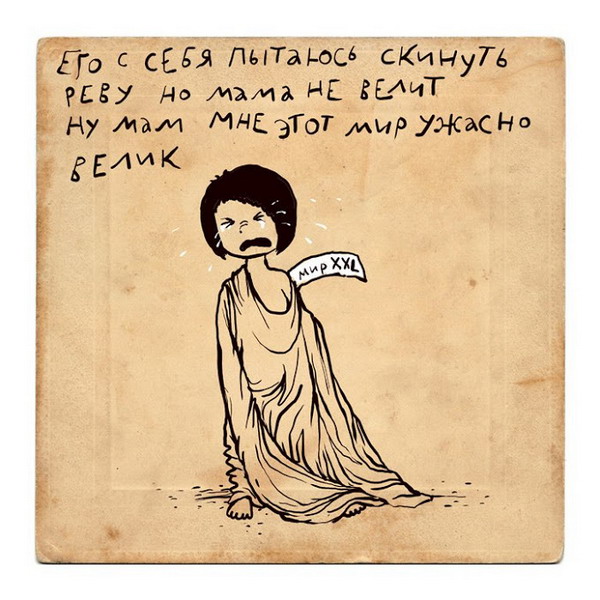 Его с себя пытаюсь скинуть
реву но мама не велит
ну мам мне этот мир ужасно
велик
мир XXL